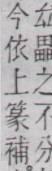 垒壘之不分
今依上篆補